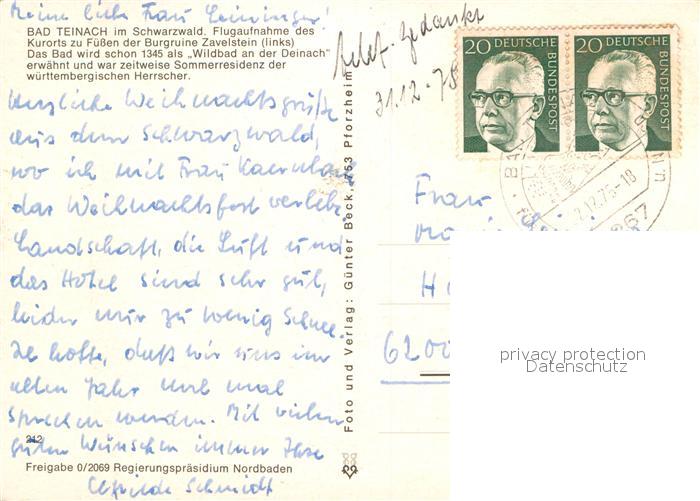 Meine liebe Frau Leininger!
BAD TEINACH im Schwarzwald. Flugaufnahme des
Kurorts zu Füßen der Burgruine Zavelstein (links)
Das Bad wird schon 1345 als „Wildbad an der Deinach"
erwähnt und war zeitweise Sommerresidenz der
württembergischen Herrscher.
Herzliche Weihnachtsgrüße
aus dem Schwarzwald,
wo ich mit Frau
das Weihnachtsfest verlebe.
Landschaft, die Luft und
das Hotel sind sehr gut,
leider nur zu wenig Schnee.
Ich hoffe, daß wir uns im
alten Jahr noch mal
sprechen werden. Mit vielen
212
guten Wünschen immer Ihre
Freigabe 0/2069 Regierungspräsidium Nordbaden
Elfriede Schmidt
Foto und Verlag: Günter Beck, 753 Pforzheim
telef. gedankt
31.12.75
20 DEUTSCHE BUNDESPOST
20 DEUTSCHE BUNDESPOST
.12.75-18
Frau
H
6200
privacy protection
Datenschutz